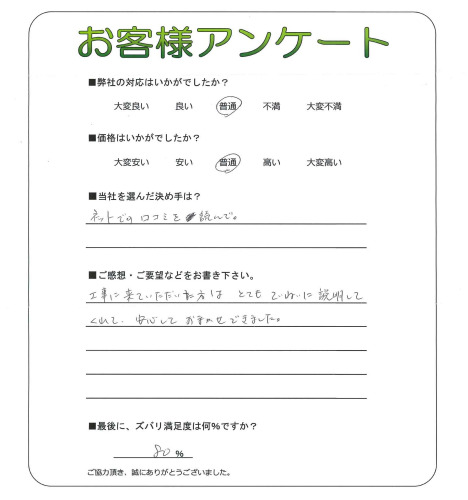 お客様アンケート
■弊社の対応はいかがでしたか？
大変良い 良い 普通 不満 大変不満
■価格はいかがでしたか？
大変安い 安い 普通 高い 大変高い
■当社を選んだ決め手は？
ネットでの口コミを読んで。
■ご感想・ご要望などをお書き下さい。
工事に来ていただいた方は とても ていねいに 説明して
くれて、安心して おまかせできました。
■最後に、ズバリ満足度は何％ですか？
80 ％
ご協力頂き、誠にありがとうございました。